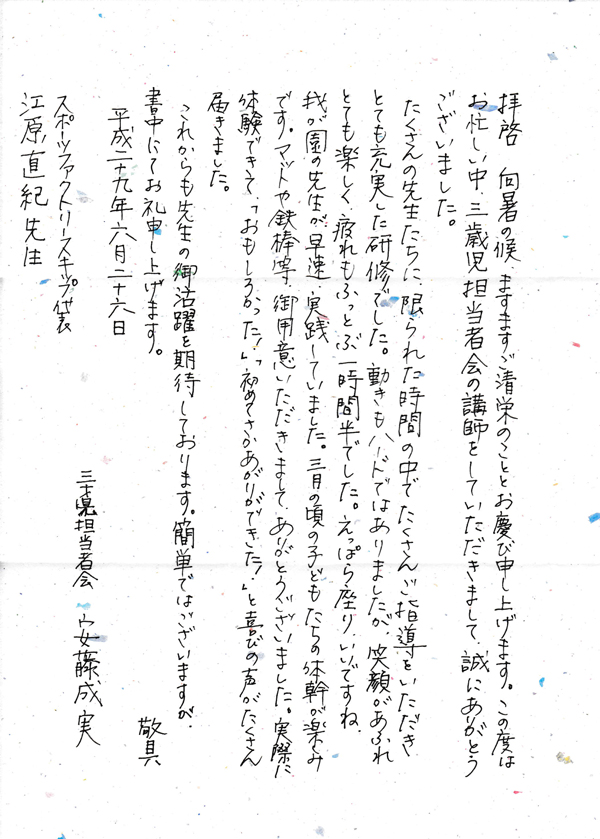 拝啓　向暑の候　ますますご清栄のこととお慶び申し上げます。この度は
お忙しい中、三歳児担当者会の講師をしていただきまして、誠にありがとう
ございました。
たくさんの先生たちに、限られた時間の中でたくさんご指導をいただき
とても充実した研修でした。動きもハードではありましたが、笑顔があふれ
とても楽しく、疲れもふっとぶ一時間半でした。えっぱら座り、いいですね、
我が園の先生が早速、実践していました。三月の頃の子どもたちの体幹が楽しみ
です。マットや鉄棒等、御用意いただきまして、ありがとうございました。実際に
体験できて、「おもしろかった！」「初めてさかあがりができた！」と喜びの声がたくさん
届きました。
これからも先生の御活躍を期待しております。簡単ではございますが、
書中にてお礼申し上げます。
敬具
平成二十九年六月二十六日
三歳児担当者会　安藤成実
スポーツファクトリースキップ代表
江原直紀先生